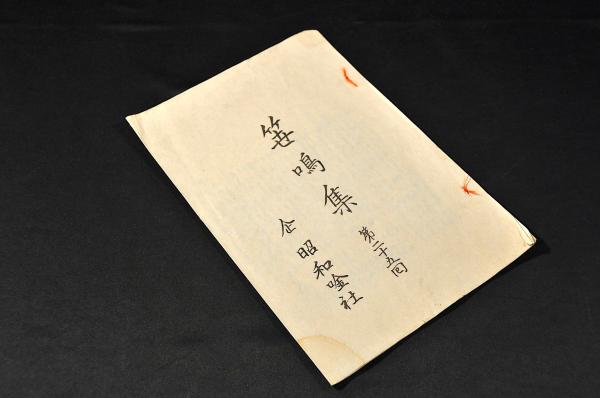 笹鳴集
第二十五回
企 昭和唫社